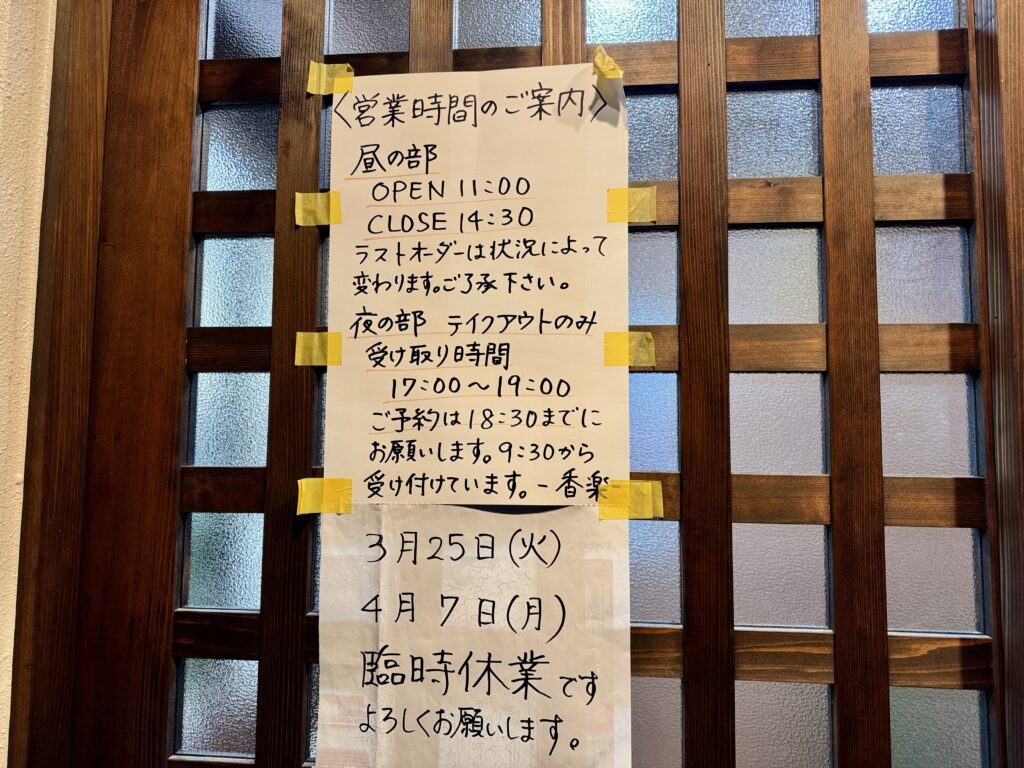 〈営業時間のご案内〉
昼の部
OPEN 11:00
CLOSE 14:30
ラストオーダーは状況によって
変わります。ご了承下さい。
夜の部 テイクアウトのみ
受け取り時間
17:00〜19:00
ご予約は18:30までに
お願いします。9:30から
受け付けています。-香楽-
3月25日(火)
4月7日(月)
臨時休業です
よろしくお願いします。